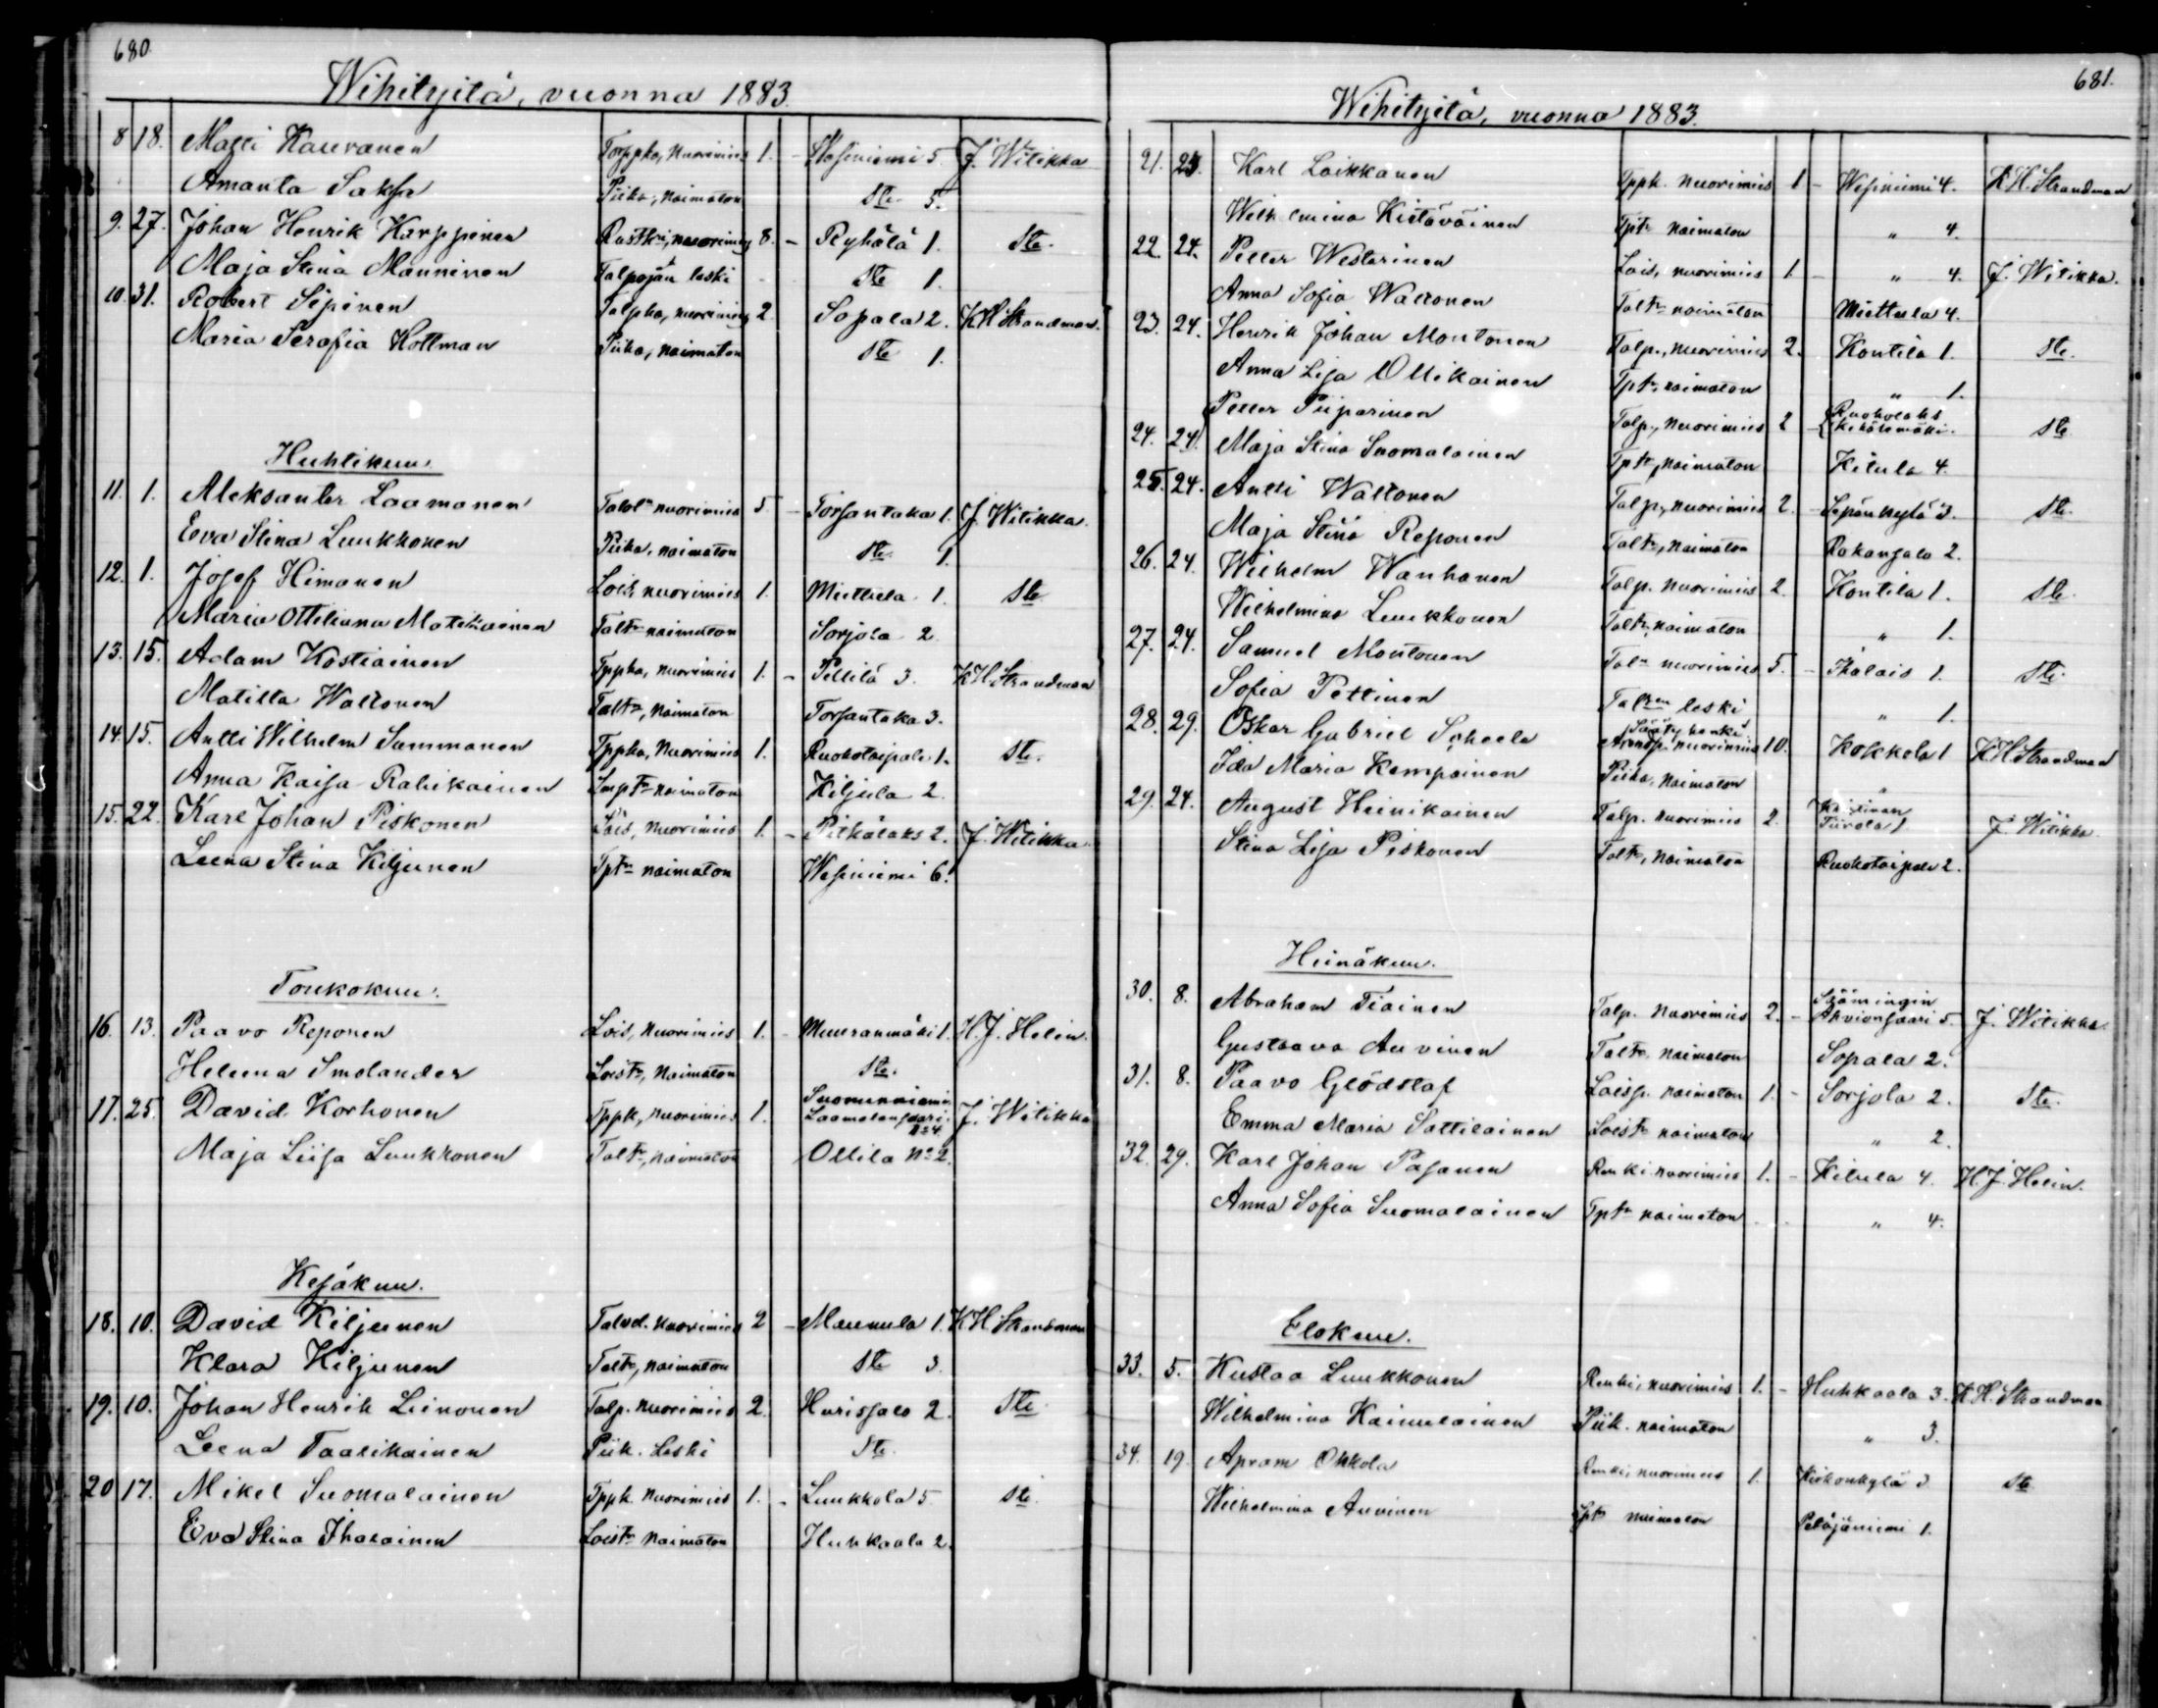 680.
Wihityitä, vuonna 1883.
8 18. Matti Kauranen Torppka, nuorimies 1. - Wesiniemi 5. J. Witikka
Amanta Saksa Piika, naimaton Ste 5.
9. 27. Johan Henrik Karppinen nuorimies 8. - Ryhälä 1. Ste.
Maja Stina Manninen leski - Ste 1.
10. 31. Robert Sipinen Talpka, nuorimies 2 Sopala 2. KH Strandman.
Maria Serafia Hottman Piika, naimaton Ste 1.
Huhtikuu.
11. 1. Aleksanter Laamanen nuorimies 5 - Torsantaka 1. J. Witikka.
Eeva Stina Luukkonen Piika, naimaton Ste. 1.
12. 1. Josef Himanen Lois, nuorimies 1. Miettula 1. Ste.
Maria Ottiliana Matikainen Taltr naimaton Sorjola 2
13. 15. Adam Kostiainen Tppka, nuorimies 1. - Pellilä 3. KH Strandman
Matilta Waltonen Taltr, naimaton Torsantaka 3.
14 15. Antti Wilhelm Summanen Tppka, nuorimies 1. Ruokotaipale 1. Ste.
Anna Kaisa Rahikainen naimaton Kiljula 2
15. 22. Karl Johan Piskonen Lois, nuorimies 1. - Pitkälaks 2. J. Witikka.
Leena Stina Kiljunen Tptr naimaton Wesiniemi 6.
Toukokuu.
16. 13. Paavo Reponen Lois, nuorimies 1. - Muuranmäki 1. H. J. Helin.
Heleena Smolander Loistr, naimaton Ste.
17. 25. David Korhonen Tppk, nuorimies 1. Suomenniemi J. Witikka
Maja Liisa Luukkonen Taltr, naimaton Ollila No 2.
Kesäkuu.
18. 10. David Kiljunen Talvd. nuorimies 2 - Maunula 1. KH Strandman
Klara Kiljunen Taltr, naimaton Ste 3.
19. 10. Johan Henrik Leinonen Talp. nuorimies 2. Hurissalo 2. Ste
Leena Taarikainen Piik. Leski Ste.
20 17. Mikel Suomalainen Tppk. nuorimies 1. - Luukkola 5 Ste.
Eva Stina Ihalainen Loistr naimaton Huhkaala 2.
681.
Wihityitä, vuonna 1883.
21. Karl Laikkanen Tppk. nuorimies 1 - Wesiniemi 4. KH Strandman
Wilhelmina Kietäväinen Tptr naimaton " 4.
22. 24. Petter Westerinen Lois, nuorimies 1. - " 4. J. Witikka.
Anna Sofia Waltonen Taltr naimaton Miettula 4.
23. 24. Henrik Johan Montonen Talp., nuorimies 2. Kontila 1. Ste.
Anna Lisa Ollikainen Tptr, naimaton " 1.
Petter Piiparinen Talp., nuorimies 2 Ruokolaks Ste
24. 24. Maja Stina Suomalainen Tptr, naimaton Kilula 4.
25. 24. Antti Waltonen Talp., nuorimies 2. - Sepänkylä 3. Ste.
Maja Stina Reponen Taltr, naimaton Rakansalo 2.
26. 24. Wilhelm Wanhanen Talp. nuorimies 2. Kontila 1. Ste.
Wilhelmina Luukkonen Taltr, naimaton " 1.
27. 24. Samuel Montonen nuorimies 5. - Ihalais 1. Ste.
Sofia Pettinen leski " 1.
28. 29. Oskar Gabriel Scheele nuorimies 10. Kokkola 1 KH Strandman
Ida Maria Kemppinen Piika, naimaton "
29. 24. August Heinikainen Talp. nuorimies 2. Tiurola 1. J. Witikka.
Stina Lisa Piskonen Taltr, naimaton Ruokotaipale 2.
Heinäkuu.
30. 8. Abraham Tiainen Talp. nuorimies 2. - Säämingin Ahvionsaari 5. J. Witikka.
Gustaava Auvinen Taltr. naimaton Sopala 2.
31. 8. Paavo Glödstaf Loisp. naimaton 1. - Sorjola 2. Ste.
Emma Maria Sattilainen Loistr naimaton " 2.
32. 29. Karl Johan Pasanen Renki nuorimies 1. - Kilula 4. H. J. Helin.
Anna Sofia Suomalainen Tptr naimaton " 4.
Elokuu.
33. 5. Kustaa Luukkonen Renki, nuorimies 1. - Huhkaala 3. K. H. Strandman
Wilhelmina Kaimulainen Piik. naimaton " 3.
34. 19 Apram Ohkola Renki, nuorimies 1. Kirkonkylä 3 Ste
Wilhelmina Auvinen naimaton Petäjäniemi 1.